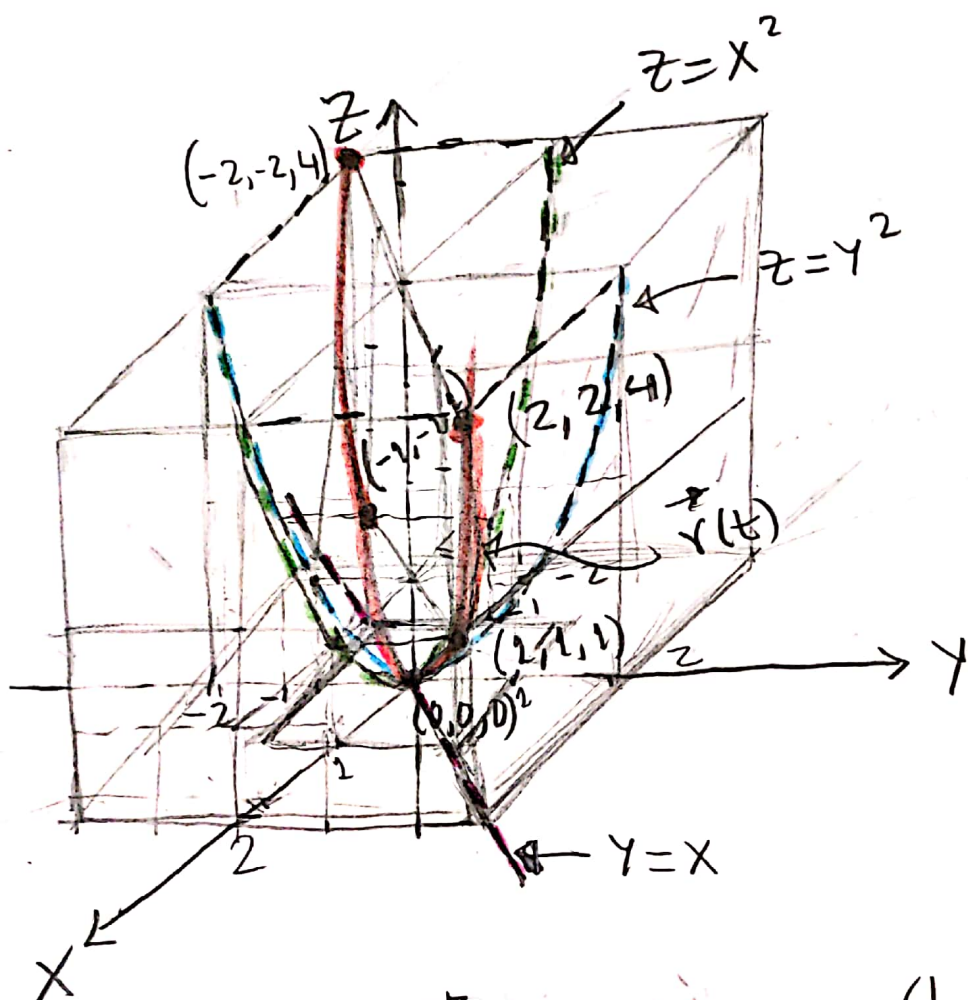 Z = X²
Z
(-2,-2,4)
Z = Y²
(2,2,4)
r(t)
-2
-1
(1,1,1)
2
Y
-2
-1
(0,0,0)
2
1
2
Y = X
X